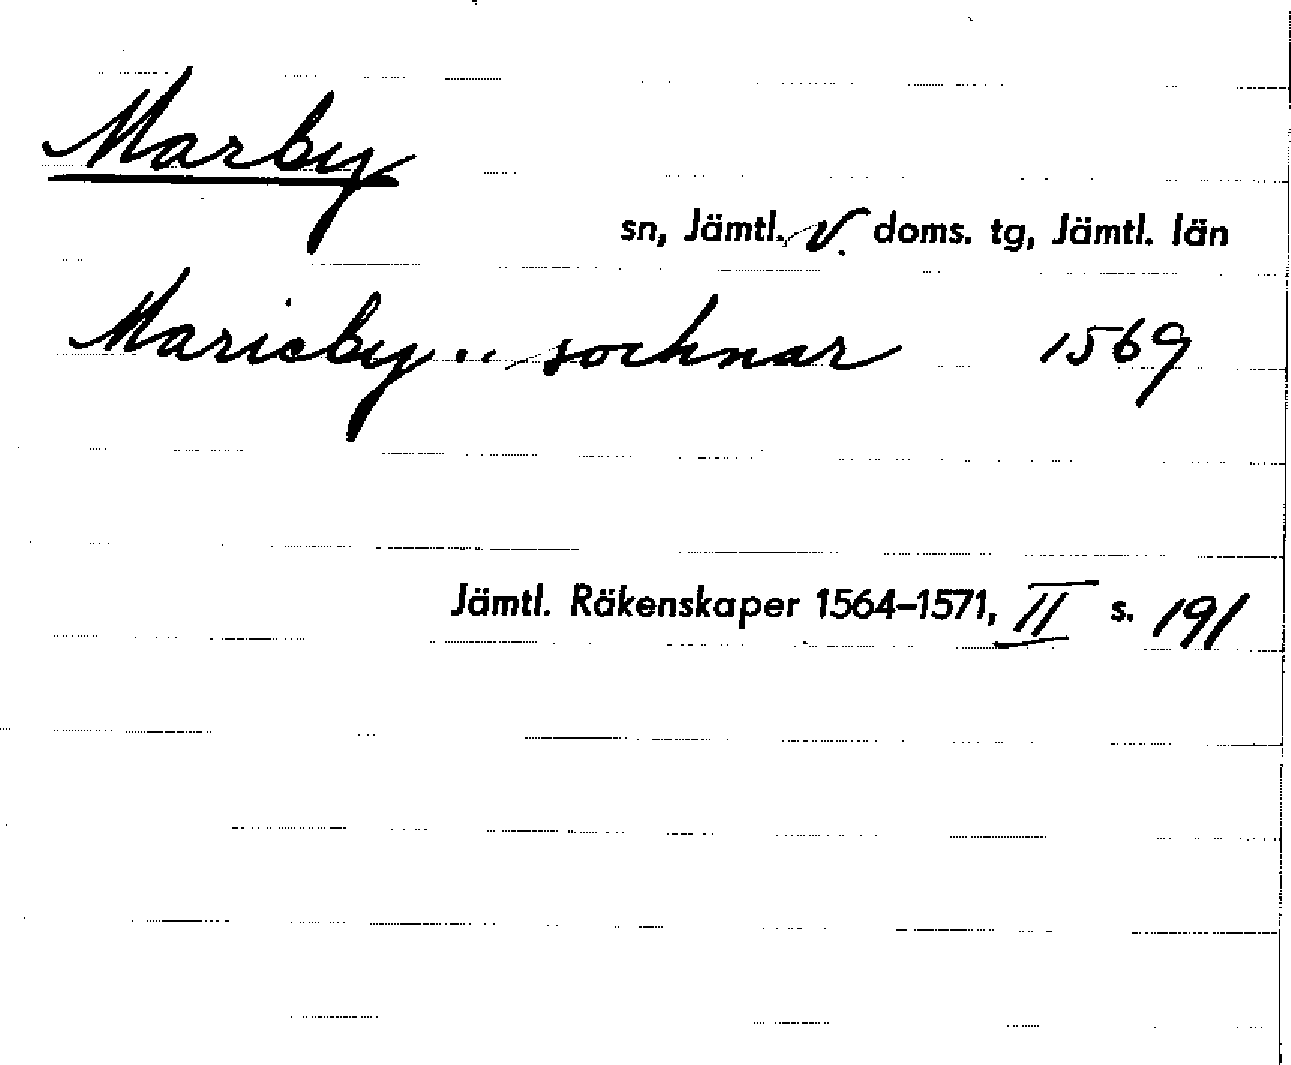 Marby
sn, Jämtl. v. doms. tg, Jämtl. län
Marieby .. sochnar 1569
Jämtl. Räkenskaper 1564–1571, II s. 191